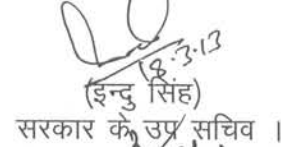 18.3.13
(इन्दु सिंह)
सरकार के उप सचिव ।